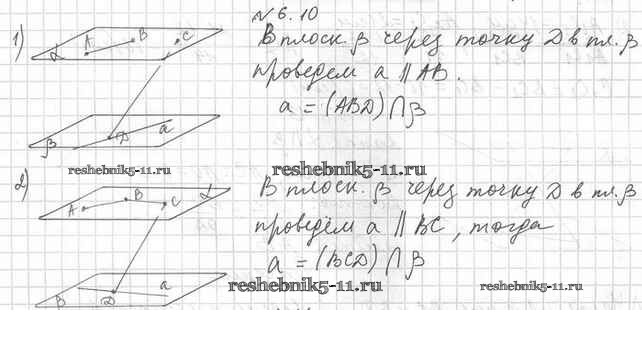 №6.10
1)
A B C
α
В плоск. β через точку D в пл. β
проведем a ∥ AB.
a = (ABD) ⋂ β
β D a
reshebnik5-11.ru reshebnik5-11.ru
2)
A B C α
В плоск. β через точку D в пл. β
проведём a ∥ BC, тогда
a = (BCD) ⋂ β
β D a
reshebnik5-11.ru reshebnik5-11.ru